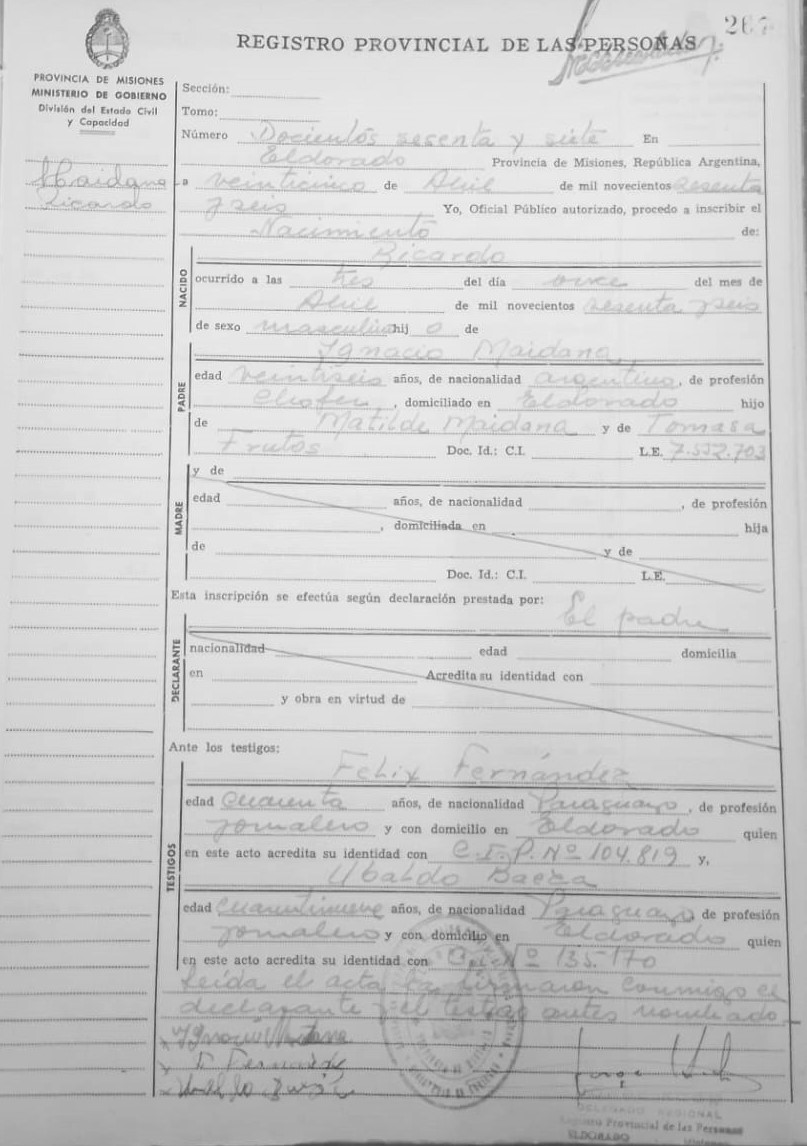 267
REGISTRO PROVINCIAL DE LAS PERSONAS
PROVINCIA DE MISIONES
MINISTERIO DE GOBIERNO
División del Estado Civil
y Capacidad
Maidana
Ricardo
Sección:
Tomo:
Número Docientos sesenta y siete En
Eldorado Provincia de Misiones, República Argentina,
a veinticinco de Abril de mil novecientos sesenta
y seis Yo, Oficial Público autorizado, procedo a inscribir el
Nacimiento de:
NACIDO
Ricardo
ocurrido a las tres del día once del mes de
Abril de mil novecientos sesenta y seis
de sexo masculino hij o de
PADRE
Ygnacio Maidana,
edad veintiseis años, de nacionalidad argentino, de profesión
Chofer, domiciliado en Eldorado hijo
de Matilde Maidana y de Tomasa
Frutos Doc. Id.: C.I. L.E. 7.532.703
MADRE
y de
edad años, de nacionalidad , de profesión
, domiciliada en hija
de y de
Doc. Id.: C.I. L.E.
Esta inscripción se efectúa según declaración prestada por: El padre
DECLARANTE
nacionalidad edad domicilia
en Acredita su identidad con
y obra en virtud de
Ante los testigos:
TESTIGOS
Felix Fernández
edad cuarenta años, de nacionalidad Paraguayo, de profesión
jornalero y con domicilio en Eldorado quien
en este acto acredita su identidad con C.I.P. Nº 104.819 y,
Ubaldo Baeza
edad cuarentinueve años, de nacionalidad Paraguayo de profesión
jornalero y con domicilio en Eldorado quien
en este acto acredita su identidad con Nº 135.170
Leída el acta la firmaron conmigo el
declarante y el testigo antes nombrado
F. Fernandez
DELEGADO REGIONAL
Registro Provincial de las Personas
ELDORADO